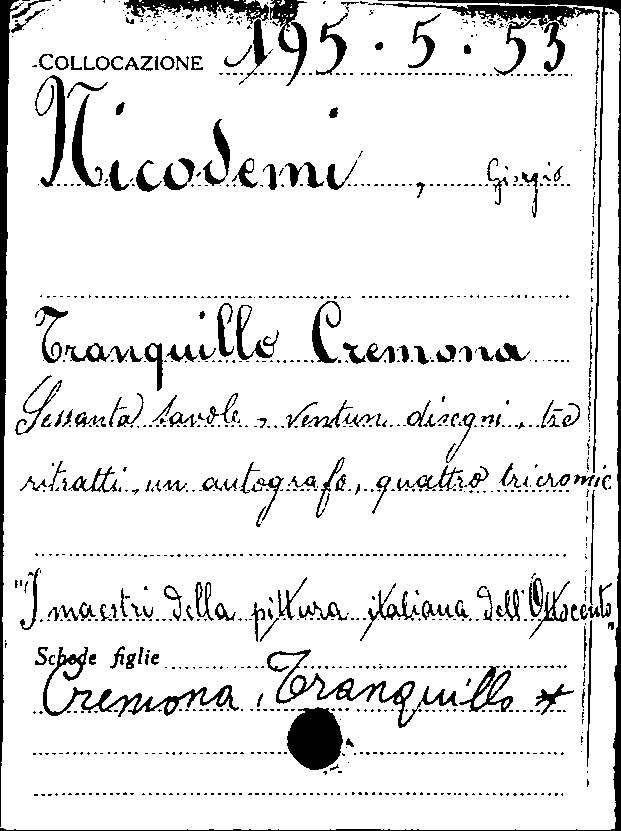 COLLOCAZIONE 195.5.53
Nicodemi, Giorgio
Tranquillo Cremona
Sessanta tavole, ventun disegni, tre
ritratti, un autografo, quattro tricromie
"I maestri della pittura italiana dell'Ottocento"
Schede figlie
Cremona, Tranquillo *